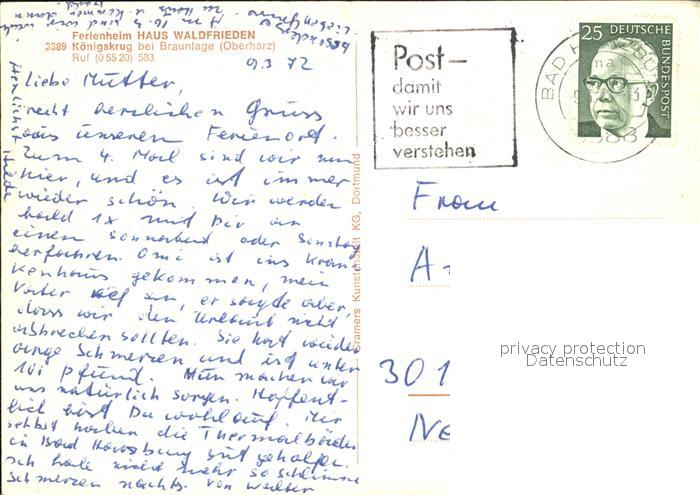 Ferienheim HAUS WALDFRIEDEN
3389 Königskrug bei Braunlage (Oberharz)
Ruf (0 55 20) 583
9.3.72
Liebe Mutter,
recht herzlichen Gruss
aus unserem Ferienort.
Zum 4. Mal sind wir nun
hier, und es ist immer
wieder schön. Wir werden
bald 1x mit Dir an
einem Sonnabend oder Sonntag
herfahren. Omi ist ins Kran-
kenhaus gekommen, mein
Vater rief an, er sagte aber,
dass wir den Urlaub nicht
abbrechen sollten. Sie hat wieder
arge Schmerzen und ist unter
101 Pfund. Nun machen wir
uns natürlich Sorgen. Hoffent-
lich bist Du wohlauf. Mir
selbst haben die Thermalbäder
in Bad Harzburg gut geholfen.
Ich habe nicht mehr so schlimme
Schmerzen nachts. von Walter
Herzlichst
Heide
Cramers Kunstanstalt KG, Dortmund
Post—
damit
wir uns
besser
verstehen
BAD
25 DEUTSCHE
BUNDESPOST
Frau
A
301
Ne
privacy protection
Datenschutz